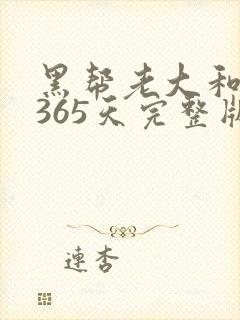 黑帮老大和
365天完整版
連杏